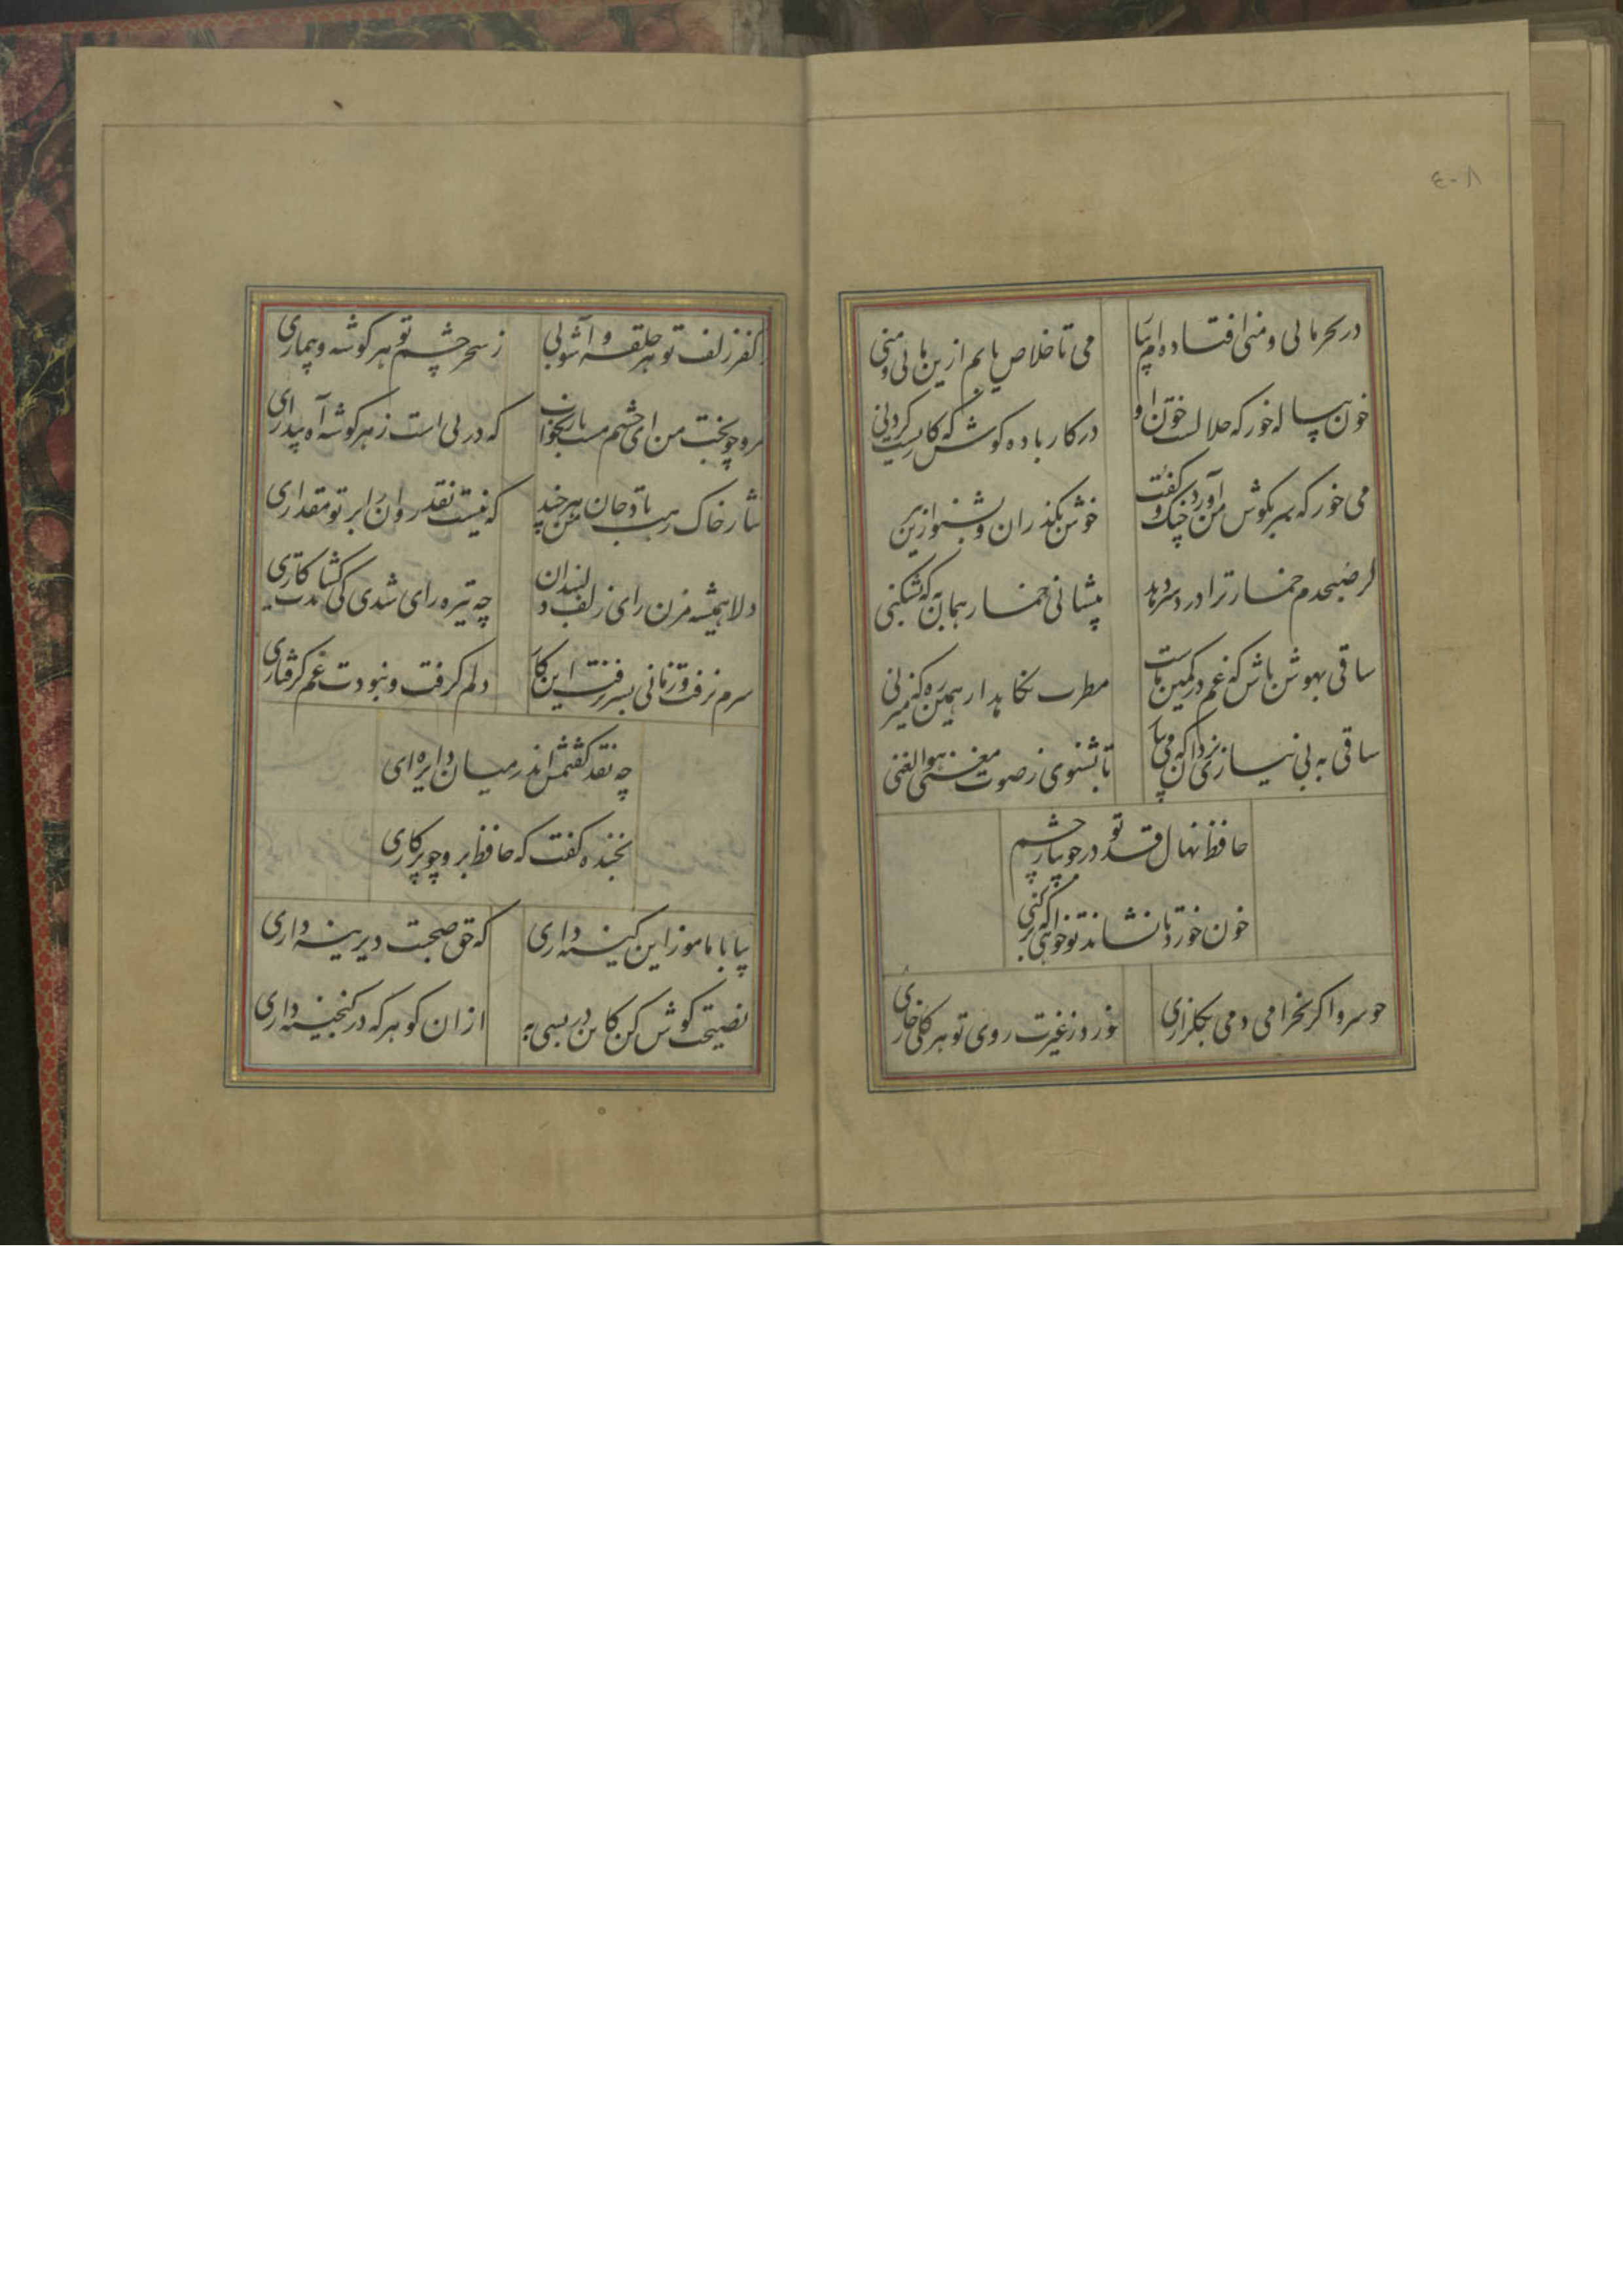 ٤٠٨
در بحر مائی و منی افتاده ام بیا
می تا خلاص یابم ازین مائی و منی
خون پیاله خور که حلالست خون او
در کار باده کوش که کاریست کردنی
می خور که سر بگوش من آورد چنگ و گفت
خوش بگذران و بشنو ازین پیر
گر صبحدم خمار ترا درد سر دهد
پیشانی خمار همان به که بشکنی
ساقی بهوش باش که غم در کمین ماست
مطرب نگاهدار همین ره که میزنی
ساقی به بی نیازی یزدان که می بیا
تا بشنوی ز صوت مغنی هو الغنی
حافظ نهال قد تو در جویبار چشم
خون خورد تا نشاند تو خواهی که بر کنی
چو سرو اگر بخرامی دمی بگلزاری
خورد ز غیرت روی تو هر گلی خاری
ز کفر زلف تو هر حلقه و آشوبی
ز سحر چشم تو هر گوشه و بیماری
مرو چو بخت من ای چشم مست یار بخواب
که در پی است ز هر گوشه آه بیداری
نثار خاک رهت باد جان من هر چند
که نیست نقد روان را بر تو مقداری
دلا همیشه مزن رای زلف دلبندان
چه تیره رای شدی کی گشایدت کاری
سرم نرفت و زمانی بسر نرفت این کار
دلم گرفت و نبودت غم گرفتاری
چه نقد گفتمش اندر میان دایره ای
بخنده گفت که حافظ برو چو پرگاری
بیا با ما موز این کینه داری
که حق صحبت دیرینه داری
نصیحت گوش کن کاین در بسی به
از آن گوهر که در گنجینه داری